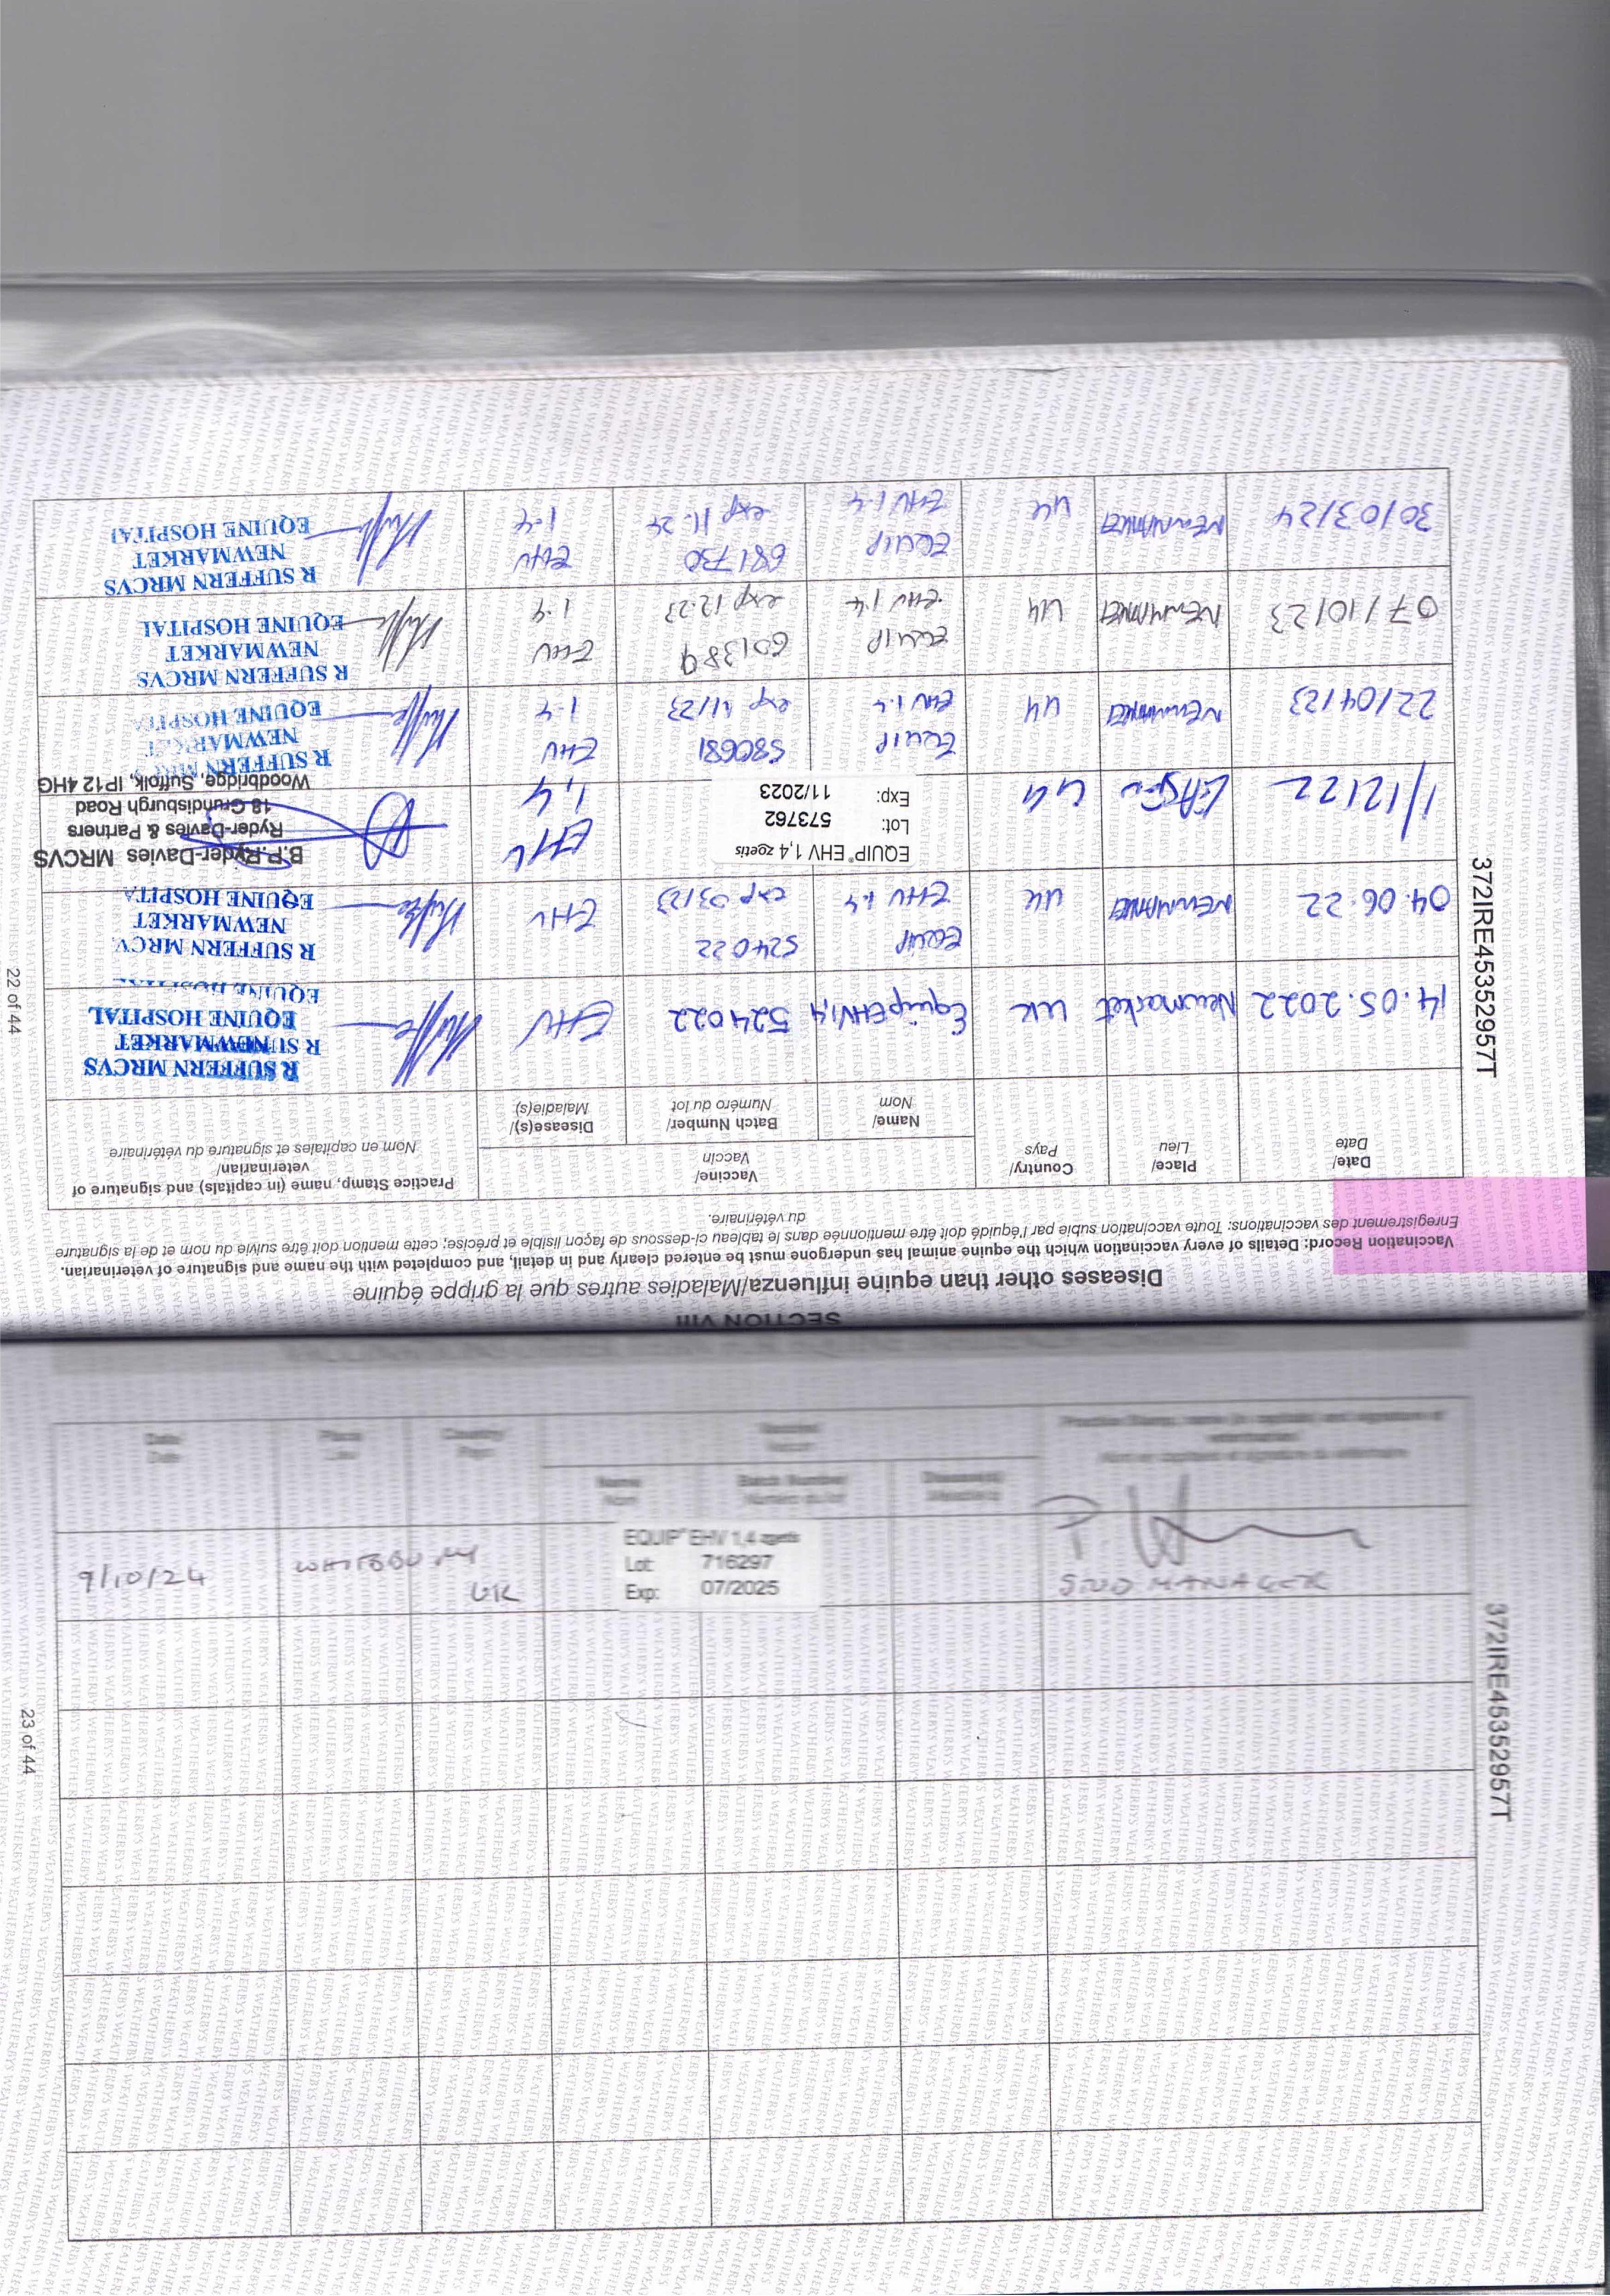 SECTION VIII
Diseases other than equine influenza/Maladies autres que la grippe équine
Vaccination Record: Details of every vaccination which the equine animal has undergone must be entered clearly and in detail, and completed with the name and signature of veterinarian.
Enregistrement des vaccinations: Toute vaccination subie par l'équidé doit être mentionnée dans le tableau ci-dessous de façon lisible et précise; cette mention doit être suivie du nom et de la signature
du vétérinaire.
Date/
Date
Place/
Lieu
Country/
Pays
Vaccine/
Vaccin
Name/
Nom
Batch Number/
Numéro du lot
Disease(s)/
Maladie(s)
Practice Stamp, name (in capitals) and signature of
veterinarian/
Nom en capitales et signature du vétérinaire
14.05.2022 Newmarket UK Equip EHV1,4 524022 EHV
R SUFFERN MRCVS
NEWMARKET
EQUINE HOSPITAL
04.06.22 NEWMARKET UK EQUIP
EHV 1.4
524022
exp 03/23
EHV
R SUFFERN MRCV
NEWMARKET
EQUINE HOSPITA
1/12/22
EQUIP® EHV 1,4 zoetis
Lot: 573762
Exp: 11/2023
EHV
1,4
B.P.Ryder-Davies MRCVS
Ryder-Davies & Partners
18 Grundisburgh Road
Woodbridge, Suffolk, IP12 4HG
22/04/23 NEWMARKET UK EQUIP
EHV 1.4
580681
exp 11/23
EHV
1-4
R SUFFERN MRC
NEWMARKET
EQUINE HOSPITA
07/10/23 NEWMARKET UK EQUIP
EHV 1.4
601389
exp 12.23
EHV
1-4
R SUFFERN MRCVS
NEWMARKET
EQUINE HOSPITAL
30/03/24 NEWMARKET UK EQUIP
EHV 1-4
681730
exp 11.24
EHV
1-4
R SUFFERN MRCVS
NEWMARKET
EQUINE HOSPITAL
372IRE45352957T
22 of 44
Date/
Date
Place/
Lieu
Country/
Pays
Vaccine/
Vaccin
Name/
Nom
Batch Number/
Numéro du lot
Disease(s)/
Maladie(s)
Practice Stamp, name (in capitals) and signature of
veterinarian/
Nom en capitales et signature du vétérinaire
9/10/24
UK
EQUIP® EHV 1,4 zoetis
Lot: 716297
Exp: 07/2025
STUD MANAGER
372IRE45352957T
23 of 44